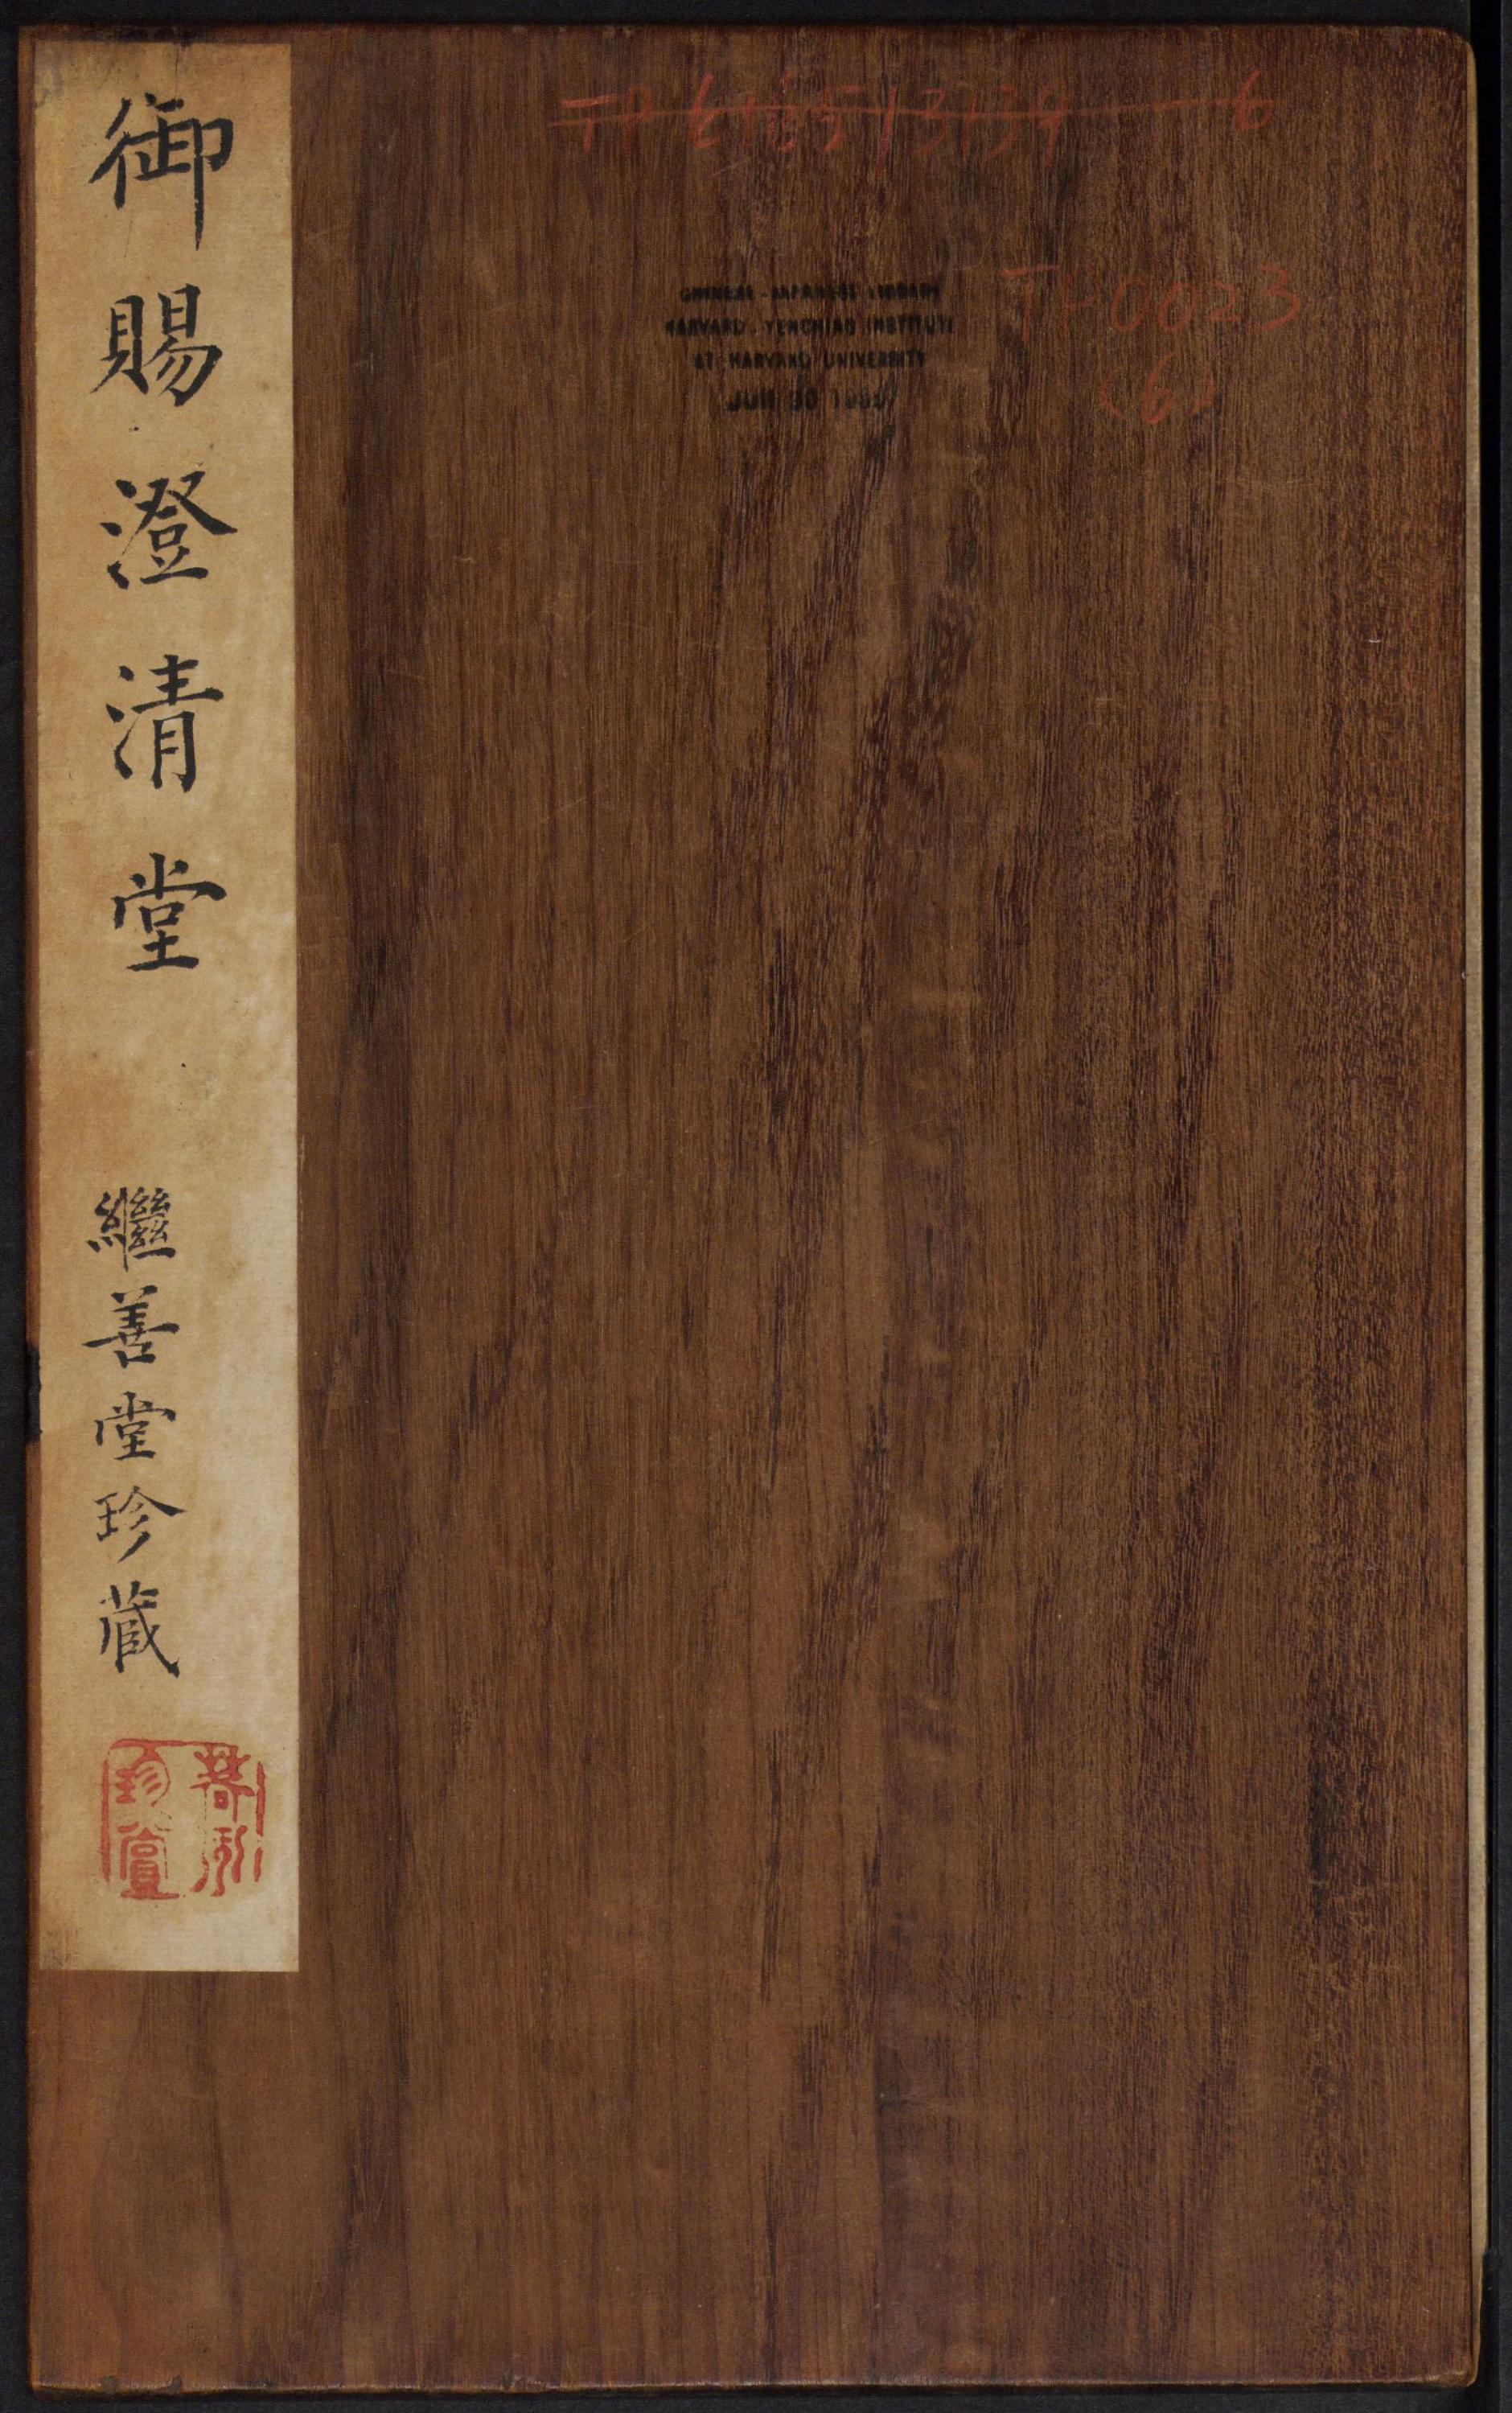 御賜澄清堂
繼善堂珍蔵
珍賞
CHINESE-JAPANESE LIBRARY
HARVARD-YENCHING INSTITUTE
AT HARVARD UNIVERSITY
JUN 30
TP0023
(6)